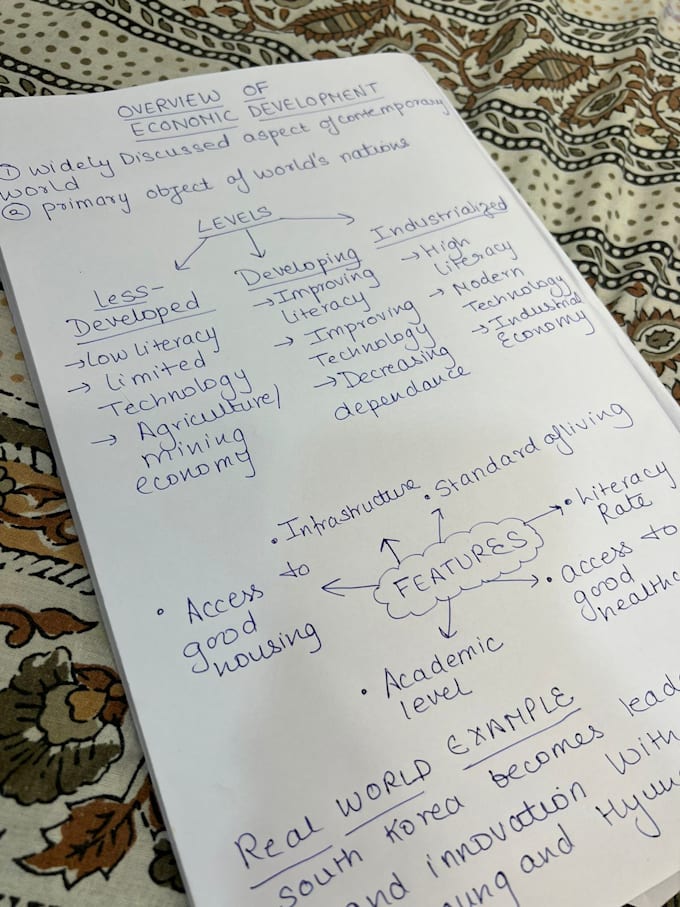 OVERVIEW OF
ECONOMIC DEVELOPMENT
① widely Discussed aspect of contemporary
world
② primary object of world's nations
LEVELS
Less-
Developed
→ Low literacy
→ Limited
Technology
→ Agriculture/
mining
economy
Developing
→ Improving
literacy
→ Improving
Technology
→ Decreasing
dependance
Industrialized
→ High
literacy
→ Modern
Technology
→ Industrial
Economy
FEATURES
• Infrastructure
• Standard of living
• Literacy
Rate
• access to
good
• Academic
level
• Access to
good
housing
Real WORLD EXAMPLE
South Korea becomes
and innovation with
and